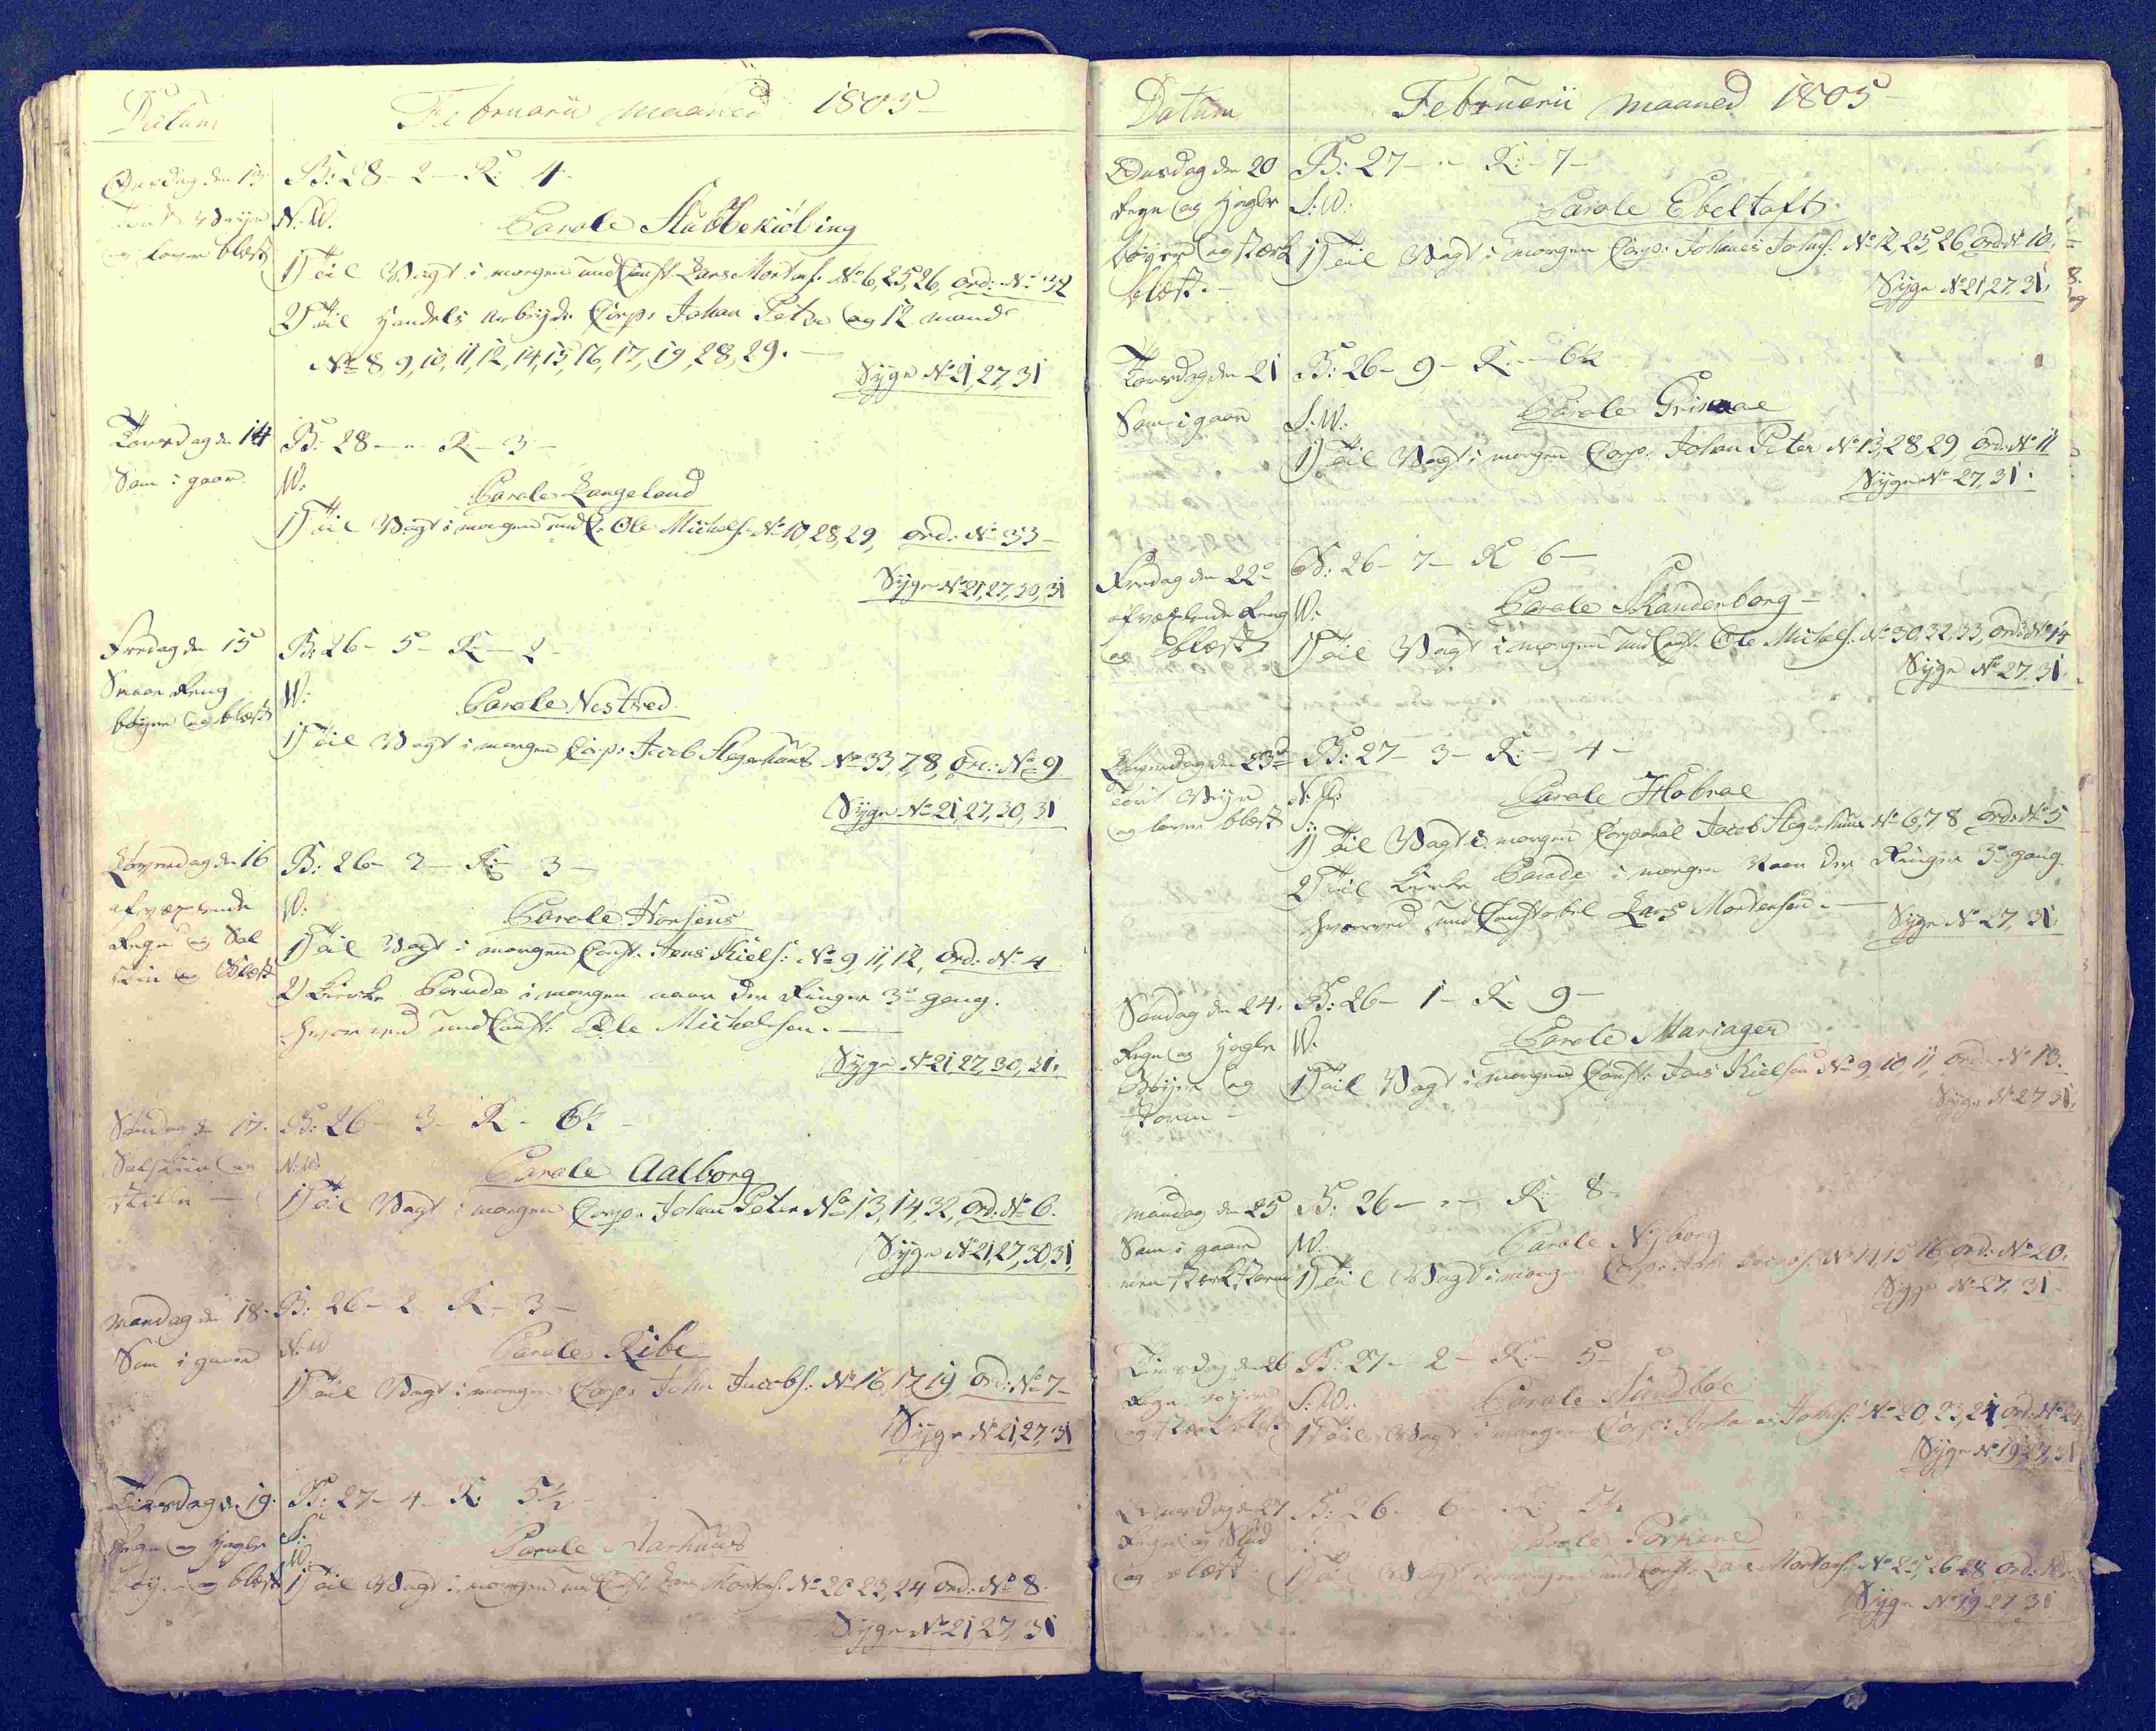 Datum
Februarii maaned 1805
Onsdag den 13 B: 28 - 2 - R: 4 -
Veyr N:W.
og laven blæst
Parole Stubbekiöbing
1) Til Vagt i morgen und Const. Lars Mortens: No 6, 25, 26, ord: No 32
2) Til Handels Arbeyde Corp: Johan Peter og 12 mand
No 8, 9, 10, 11, 12, 14, 15, 16, 17, 19, 28, 29. -
Syge No 21, 27, 31
Torsdag den 14 B: 28 - " - R - 3 -
Som i gaar W:
Parole Langeland
1) Til Vagt i morgen und C. Ole Michels: No 10, 28, 29, ord: No 33 -
Syge No 21, 27, 30, 31
Fredag den 15 B: 26 - 5 - R - 2 -
Smaae Reng W:
böyer og blæst
Parole Nestved
1) Til Vagt i morgen Corp: Jacob Hegerhuus No 33, 7, 8, ord: No 9
Syge No 21, 27, 30, 31
Löverdag den 16 B: 26 - 2 - R: 3 -
afvæxlende W:
Regn og Sol
skin og Blæst
Parole Horsens
1) Til Vagt i morgen Const. Jens Kiels: No 9, 11, 12, ord: No 4
2) Kirke Parade i morgen naar der Ringer 3de gang.
hvorved und Const: Ole Michelsen. -
Syge No 21, 27, 30, 31.
Söndag den 17. B: 26 - 3 - R - 6½ -
Solskin og N:W:
stille -
Parole Aalborg
1) Til Vagt i morgen Corp. Johan Peter No 13, 14, 32, ord. No 6.
Syge No 21, 27, 30, 31,
Mandag den 18. B: 26 - 2 R - 3 -
Som i gaar N:W
Parole Ribe
1) Til Vagt i morgen Corp: John Jacobs: No 16, 17, 19 ord: No 7 -
Syge No 21, 27, 31
Tiirsdag d. 19. B: 27 - 4 - R: 5½
Regn og Hagle S:
W:
böyer og blæst
Parole Aarhuus
1) Til Vagt i morgen und Const. Lars Mortens: No 20 23, 24 ord: No 8.
Syge No 21, 27, 31
Datum
Februarii maaned 1805 -
Onsdag den 20 B: 27 - " - R: - 7 -
Regn og Hagle S:W:
böyer og stærk
blæst. -
Parole Ebeltoft
1) Til Vagt i morgen Corp: Johanes Johns: No 12, 25, 26 ord: No 10,
Syge No 21, 27, 31,
Torsdag den 21 B: 26 - 9 - R: - 6½
Som i gaar S:W:
Parole Grinaae
1) Til Vagt i morgen Corp. Johan Peter No 13, 28, 29 ord: No 11
Syge No 27, 31.
Fredag den 22de B: 26 - 7 - R 6 -
afvæxlende Reng W:
og blæst
Parole Skanderborg -
1) Til Vagt i morgen und Const. Ole Michels: No 30, 32, 33, ord: No 14
Syge No 27, 31.
Löverdag den 23de B: 27 - 3 - R: - 4 -
Veyr
og laven blæst S:
Parole Hobroe
1) Til Vagt i morgen Corporal Jacob Hegerhuus No 6, 7 8 ord: No 5
2) Til Kirke Parade i morgen Naar der Ringer 3de gang
hvorved und Constabel Lars Mortensen. -
Syge No 27, 31
Söndag den 24. B: 26 - 1 - R. 9 -
Regn og Hagle W:
Böyer og
Storm -
Parole Mariager
1) Til Vagt i morgen Const: Jens Kielsen No 9 10 11, ord: No 13.
Syge No 27 31,
Mandag den 25 B: 26 - " - R: 8 -
Som i gaar W:
men stærk storm
Parole Nyborg
1) Til Vagt i morgen Corp: No 14, 15 16, ord: No 20.
Syge No 27, 31
Tiirsdag den 26 B: 27 - 2 - R: - 5 -
Regn böyer S:W:
og stærk blæst
Parole Sundbye
1) Til Vagt i morgen Corp: Johanes Johns: No 20, 23, 24 ord: No
Syge No 19, 27, 31
Onsdag d. 27 B: 26. 6 - R: 5½
Regn og Slud
og blæst
Parole
1) Til Vagt i morgen und Const: Lars Mortens: No 25, 26 28 ord: No
Syge No 19 27, 31